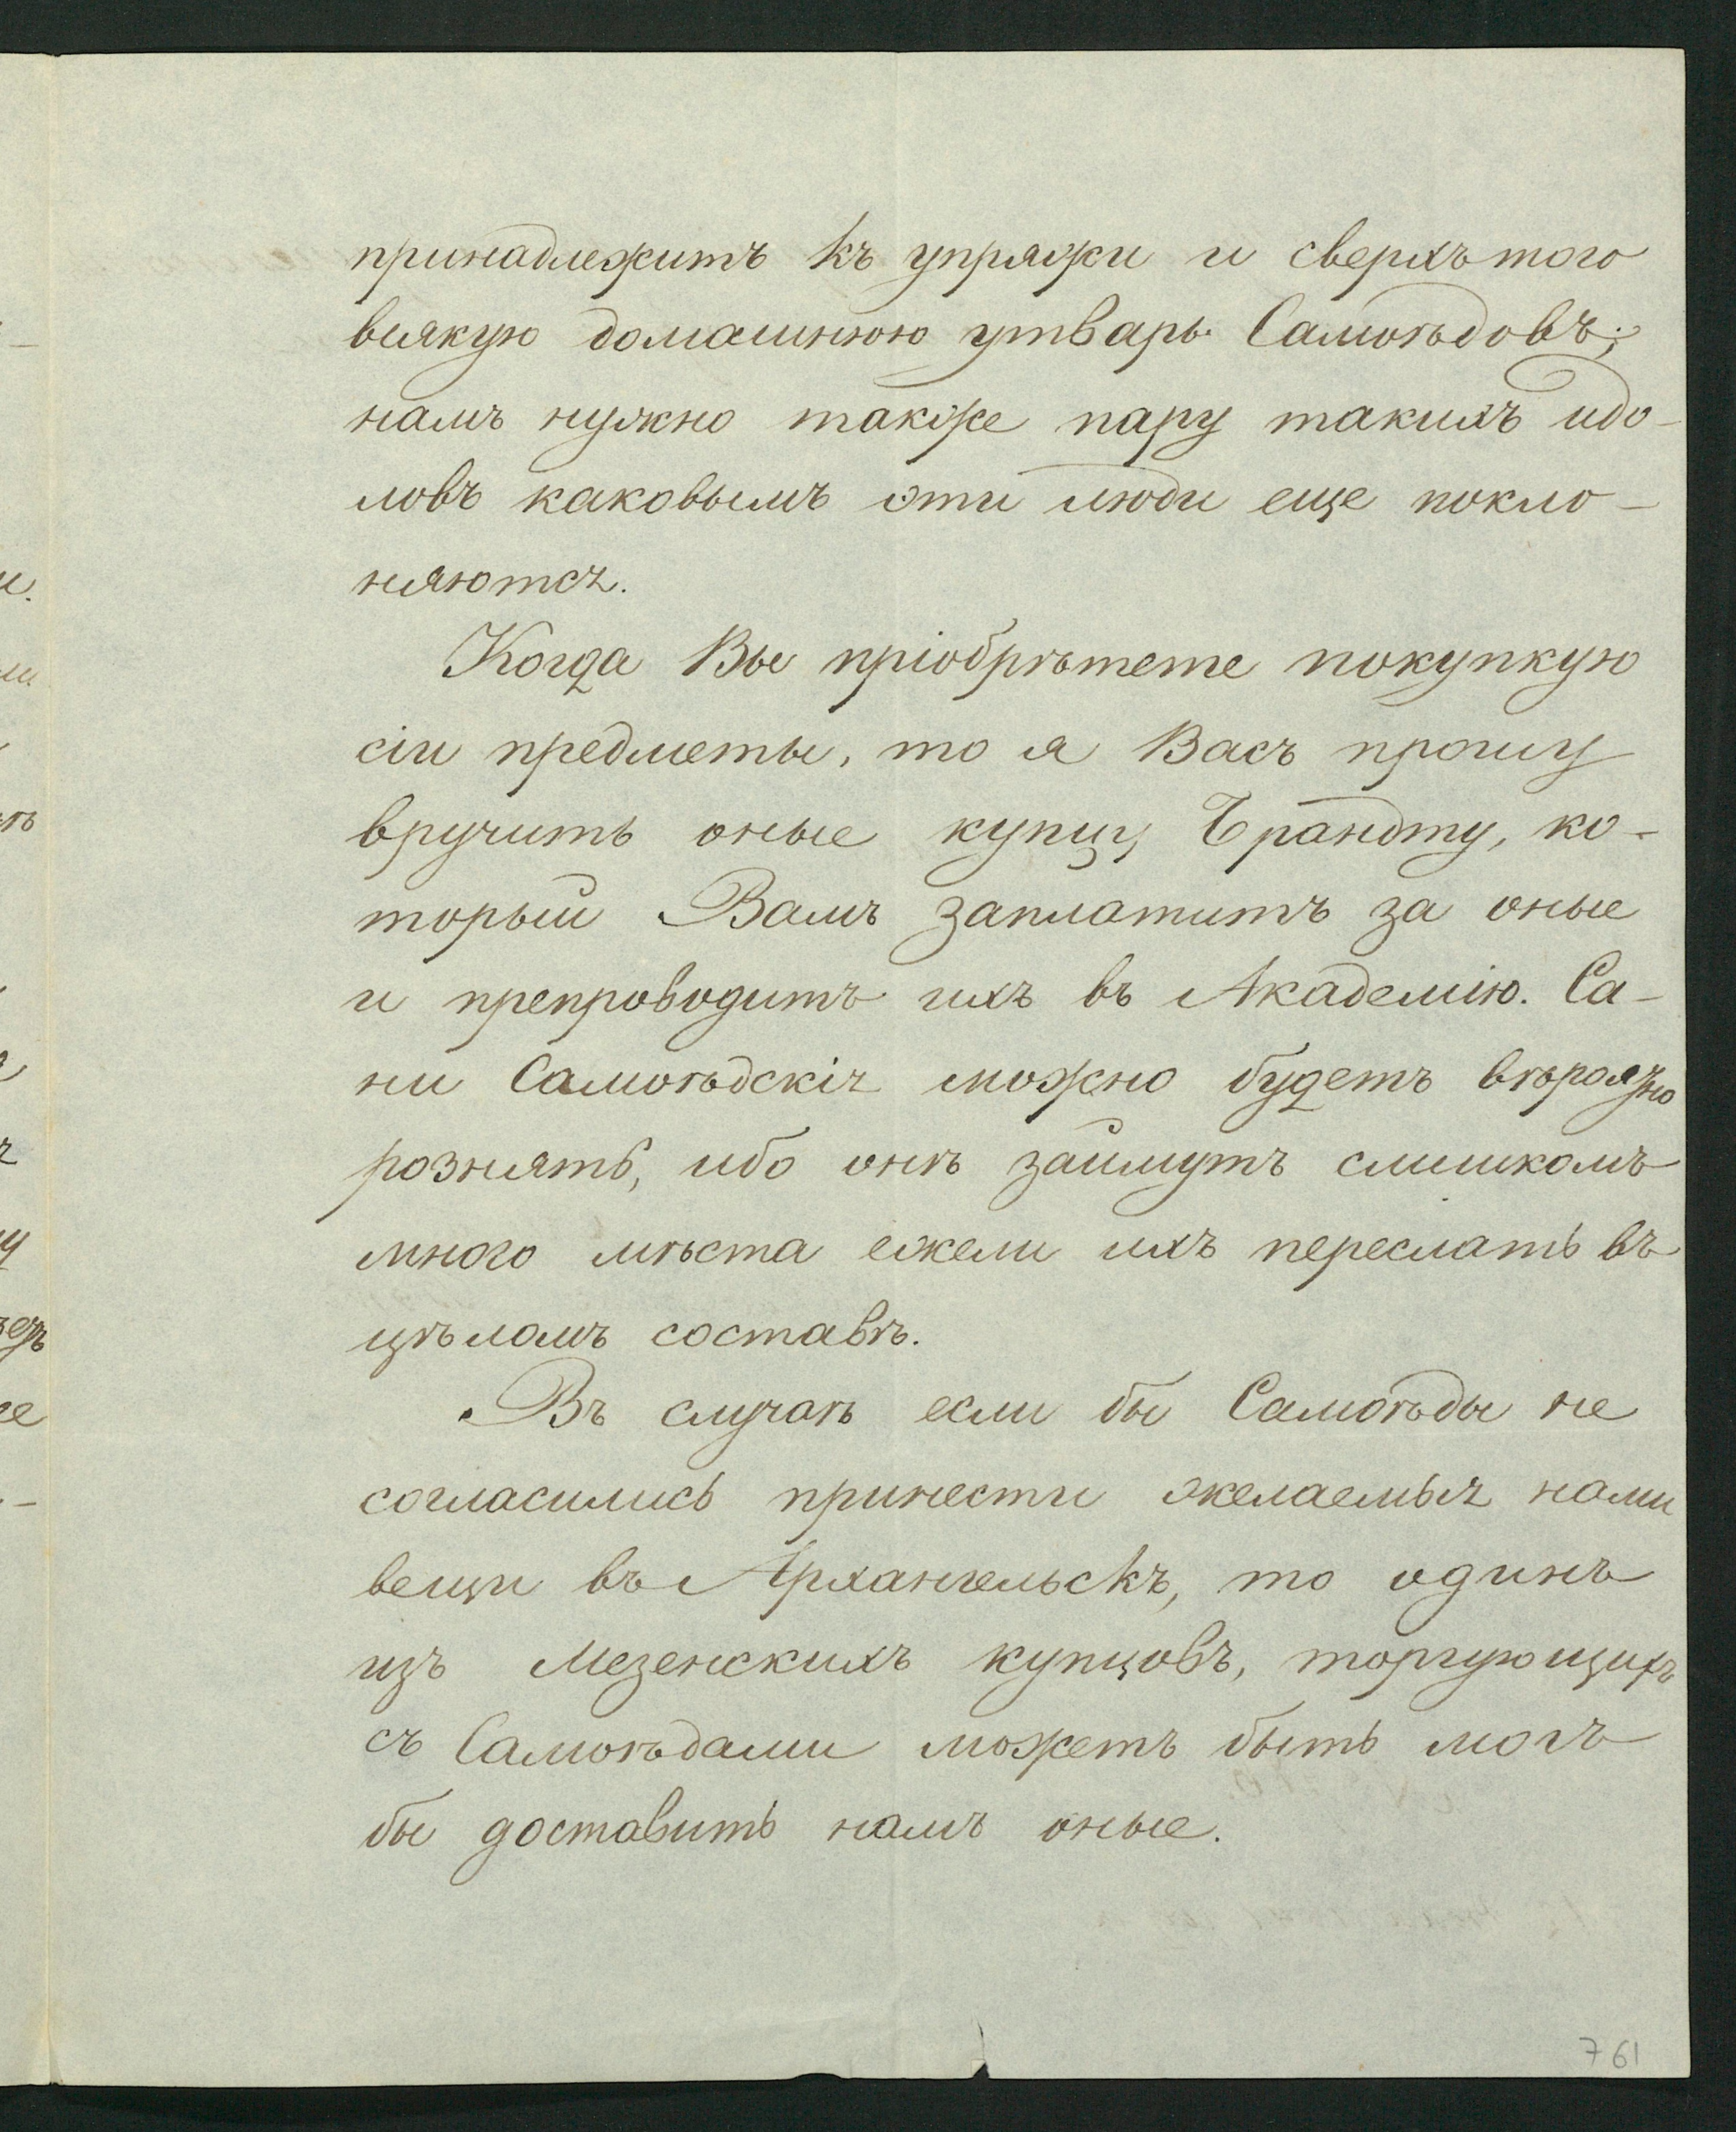 принадлежитъ къ упряжи и сверхъ того
всякую домашнюю утварь Самоѣдовъ;
намъ нужно также пару такихъ идо-
ловъ каковымъ эти люди еще покло-
няются.
Когда Вы пріобрѣтете покупкую
сіи предметы, то я Васъ прошу
вручить оные купцу Брандту, ко-
торый Вамъ заплатитъ за оные
и препроводитъ ихъ въ Академію. Са-
ни Самоѣдскія можно будетъ вѣроятно
рознять, ибо онѣ займутъ слишкомъ
много мѣста ежели ихъ переслать въ
цѣломъ составѣ.
Въ случаѣ если бы Самоѣды не
согласились принести желаемыя нами
вещи въ Архангельскъ, то одинъ
изъ Мезенскихъ купцовъ, торгующихъ
съ Самоѣдами можетъ быть могъ
бы доставить намъ оные.
761